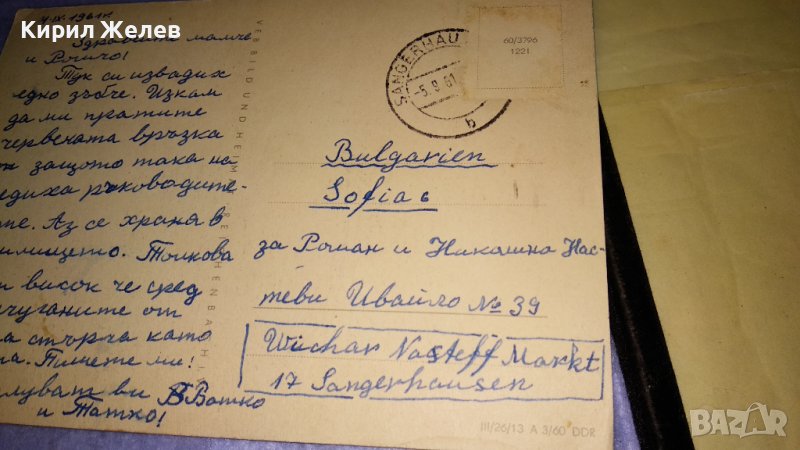 Кирил Желев
4.IX.1961г.
Здравейте мамче
и Ромчо!
Тук си извадих
едно зъбче. Искам
да ми пратите
червената връзка
защото така на
ръководите-
Аз се храня в
Толкова
висок че сред
от
стърча като
Пишете ми!
ви Батко
и Татко!
VEB BILD UND HEIM
60/3796
1221
SANGERHAU
-5.9.61
b
Bulgarien
Sofia 6
за Роман и Николина Нас-
теви Ивайло № 39
Wichar Nasteff Markt
17 Sangerhausen
III/26/13 A 3/60 DDR
BAZAR